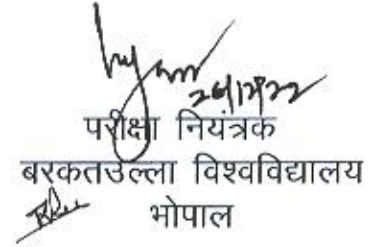 26/12/22
परीक्षा नियंत्रक
बरकतउल्ला विश्वविद्यालय
भोपाल